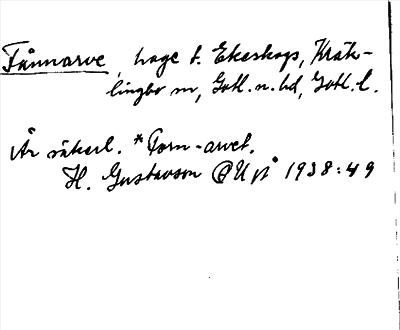 Fånnarve, hage t. Ekeskogs, Kräk-
lingbo sn, Gotl. n. hd, Gotl. l.
Är säkerl. *Forn-arvet.
H. Gustavson OUÅ 1938:49